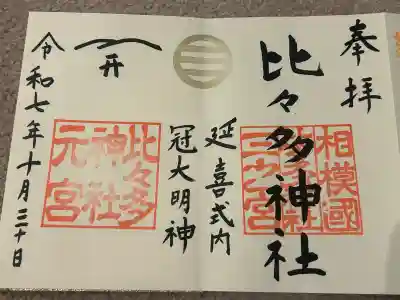 奉拝
比々多神社
相模國
三之宮
延喜式内
冠大明神
比々多
神社
元宮
令和七年十月三十日